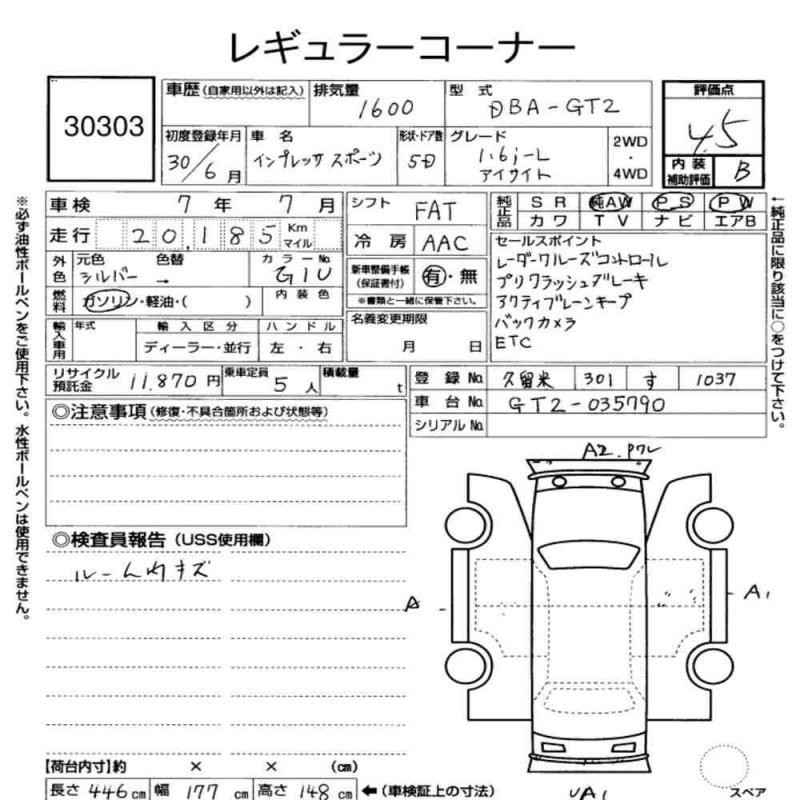 レギュラーコーナー
30303
車歴(自家用以外は記入) 排気量 1600 型式 DBA-GT2 評価点 4.5
初度登録年月 30/6月 車名 インプレッサ スポーツ 形状・ドア数 5D グレード 1.6i-L アイサイト 2WD・4WD 内装補助評価 B
車検 7年 7月 シフト FAT 純正品 SR 純AW PS PW
カワ TV ナビ エアB
走行 20,185 Km マイル 冷房 AAC
セールスポイント
レーダークルーズコントロール
プリクラッシュブレーキ
アクティブレーンキープ
バックカメラ
ETC
外色 元色 シルバー 色替 → カラーNo. G1U 新車整備手帳(保証書付) 有・無
※書類と一緒に保管下さい。
燃料 ガソリン・軽油・( ) 内装色
名義変更期限 月 日
輸入車用 年式 輸入区分 ディーラー・並行 ハンドル 左・右
リサイクル預託金 11,870円 乗車定員 5人 積載量 t
登録No. 久留米 301 す 1037
車台No. GT2-035790
シリアルNo.
◎注意事項(修復・不具合箇所および状態等)
◎検査員報告(USS使用欄)
ルーム内キズ
A2.Pクレ
A
A1
UA1
スペア
【荷台内寸】約 × × (cm)
長さ 446cm 幅 177cm 高さ 148cm ←(車検証上の寸法)
※必ず油性ボールペンをご使用下さい。水性ボールペンは使用できません。
←純正品に限り該当に○をつけて下さい。